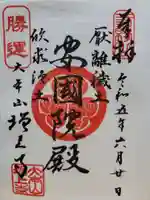 奉拝
令和五年六月廿日
厭離穢土
安國院殿
欣求浄土
勝運
大本山増上寺